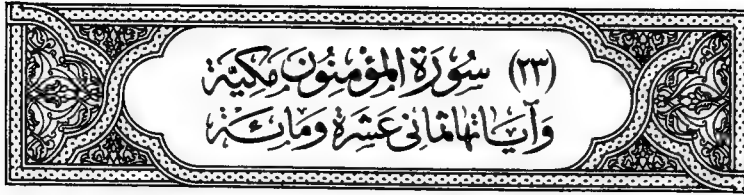 (٢٣) سُورَةُ المؤمِنُونَ مَكِيَّة
وَآيَاتُهَا ثَمَانِي عَشِرَة وَمَائِة